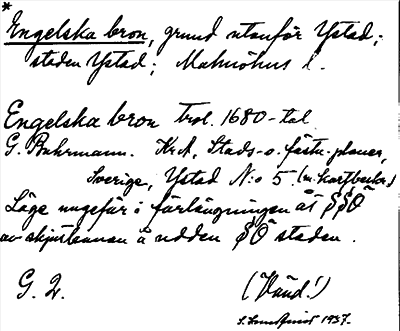 *
Engelska bron, grund utanför Ystad;
staden Ystad; Malmöhus l.
Engelska bron trol. 1680-tal
G. Buhrmann. KrA, Stads- o. fästn.planer,
Sverige, Ystad N:o 5. (m. kartbeskr.)
Läge ungefär i förlängningen åt SSÖ
av skjutbanan å udden SÖ staden.
G. 2. (Vänd!)
S. Lundqvist 1937.